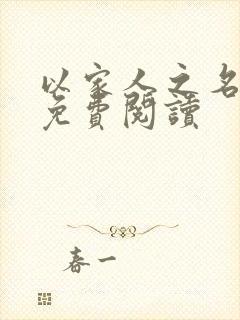 以家人之名
免費閱讀
春一